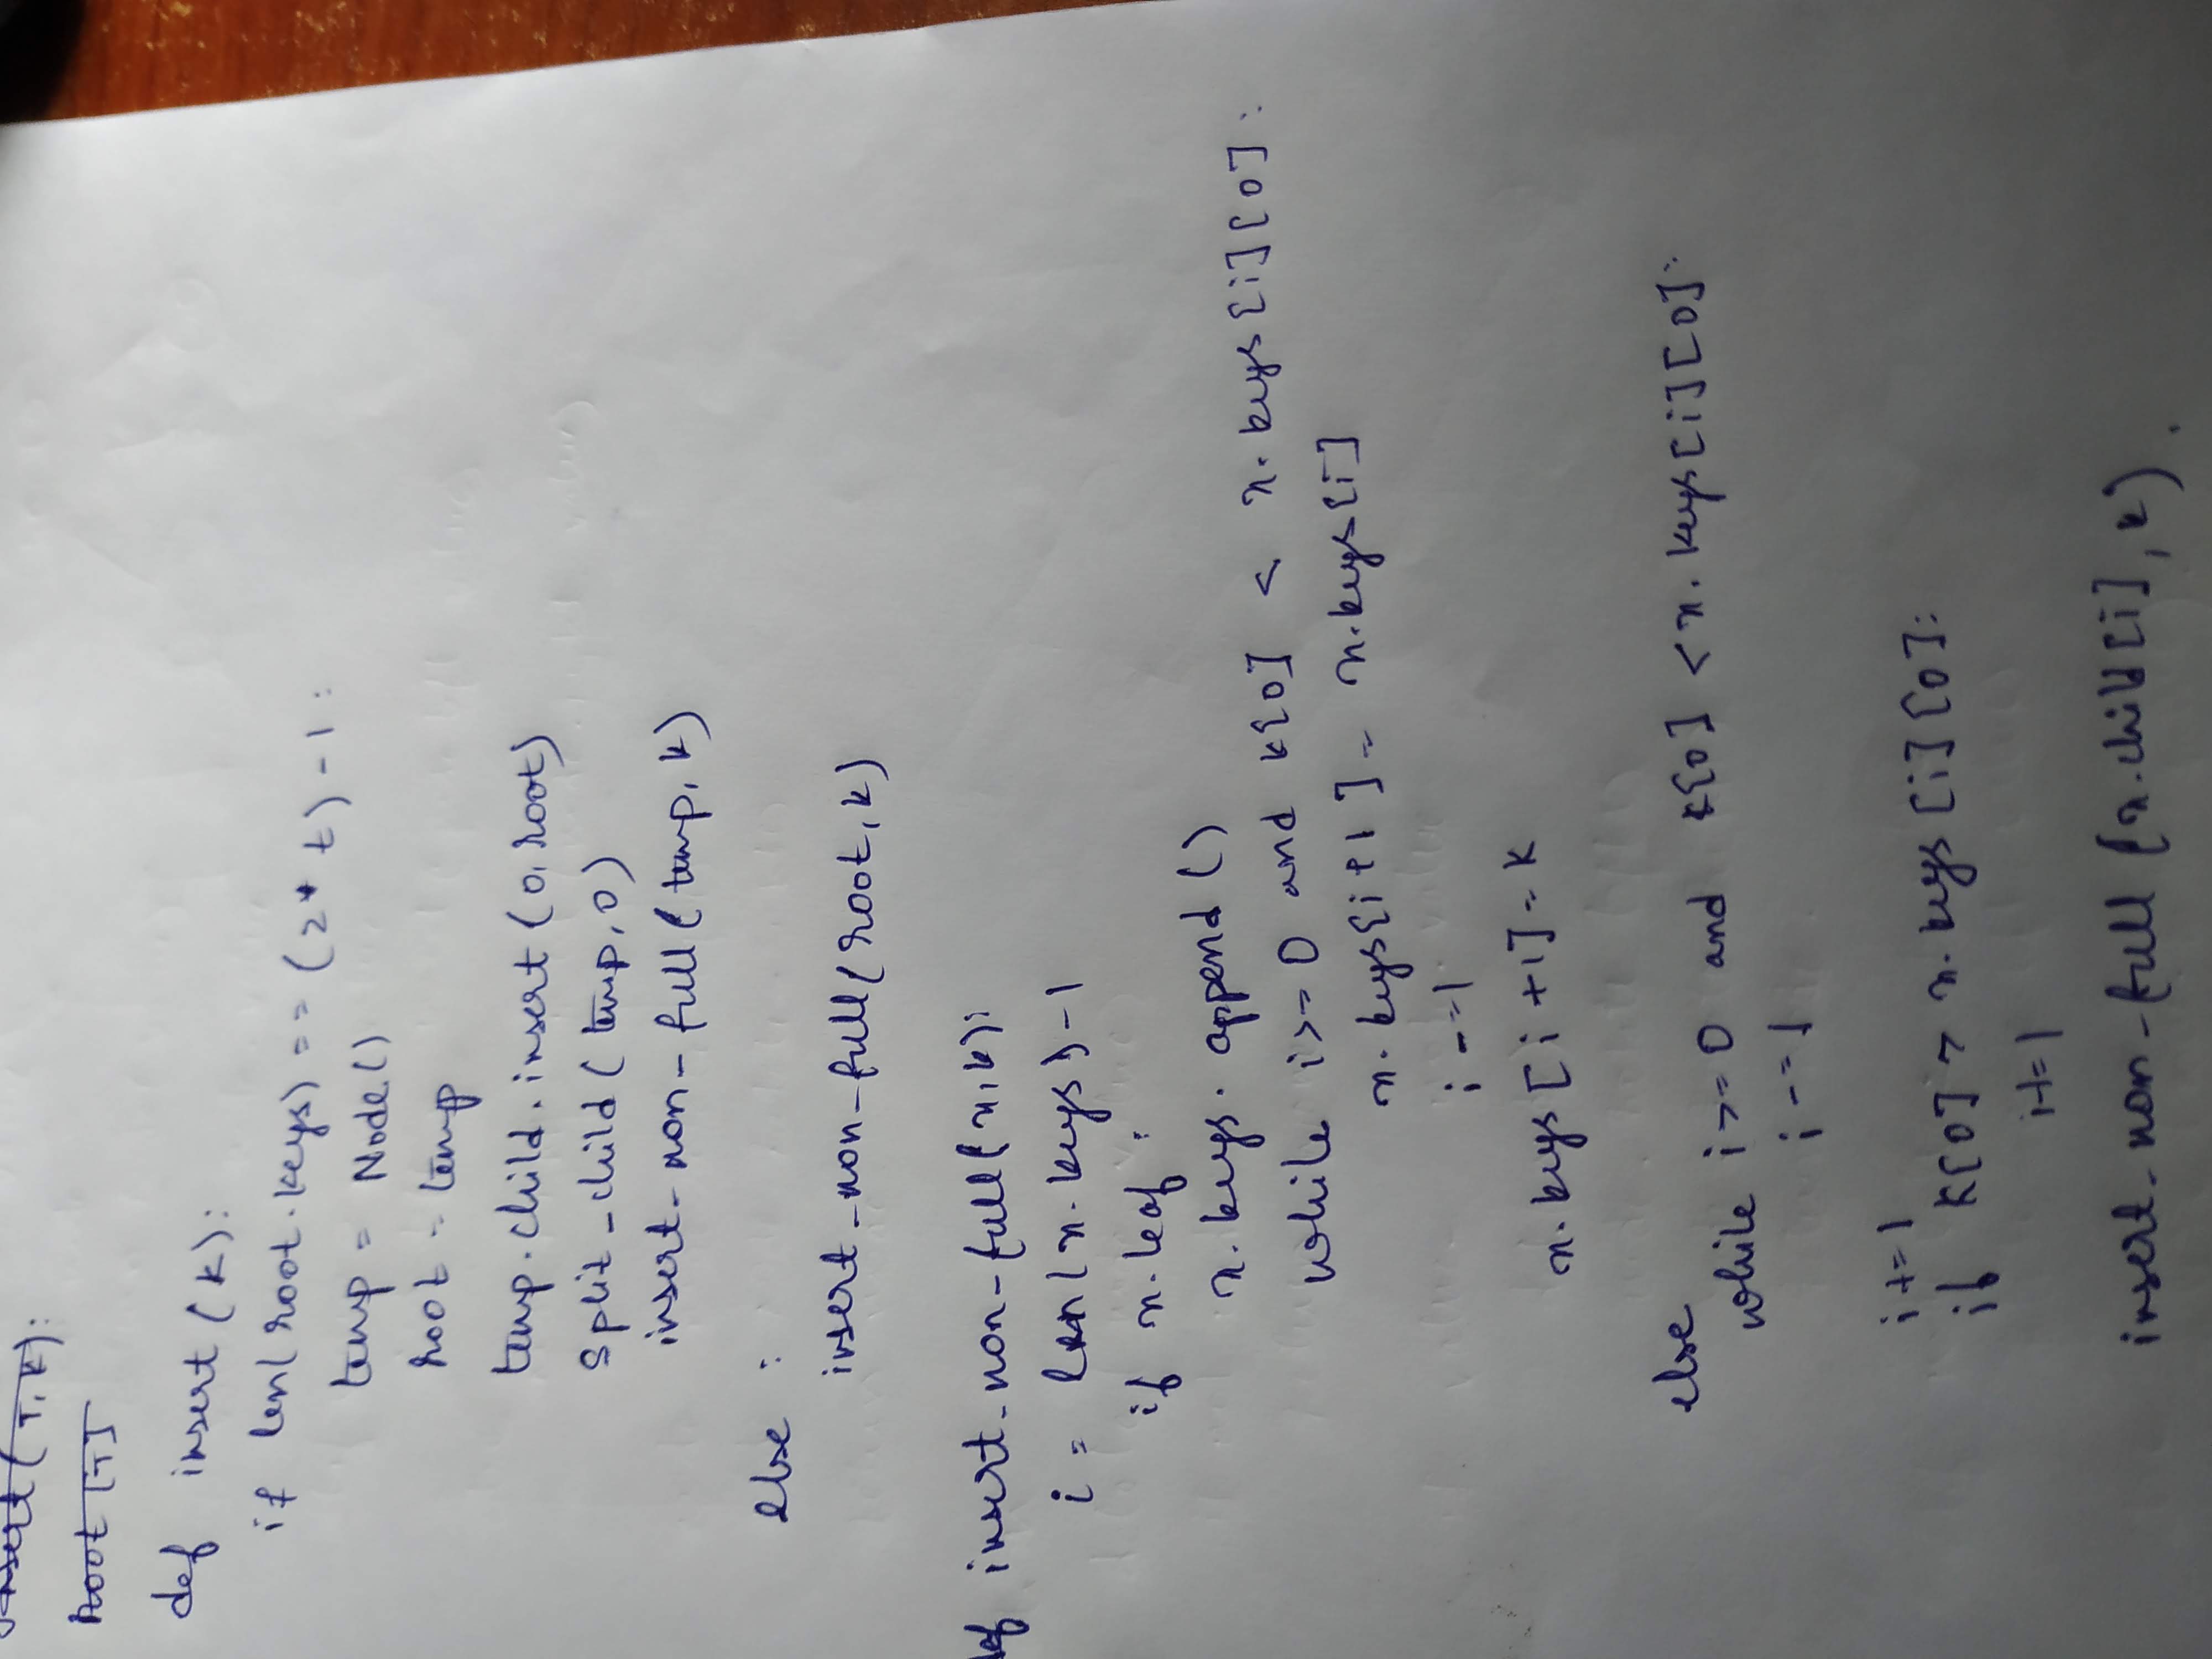 insert(T, K):
Root [T]
def insert (k):
if len(root.keys) == (2* t) -1 :
temp = Node()
root = temp
temp.child.insert (0, root)
split_child( temp, 0)
insert-non-full( temp, k)
else :
insert-non-full(root, k)
def insert-non-full(x, k):
i = len(x.keys)-1
if x.leaf :
x.keys.append ()
while i>=0 and k[0] < x.keys[i][0]:
x.keys[i+1] = x.keys[i]
i -=1
x.keys [i +1]= k
else
while i>=0 and k[0] < x.keys[i][0]:
i -=1
i +=1
if k[0] > x.keys [i] [0]:
i+=1
insert-non-full (x.child[i], k).